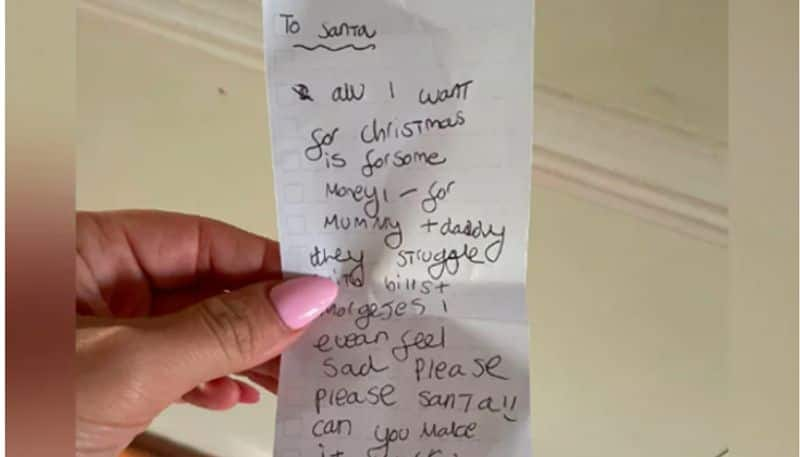 To Santa
all I want
for christmas
is forsome
Money - for
MUMMY + daddy
they struggle
bills +
morgeges I
evean feel
Sad Please
Please Santa!!
can you Make
it